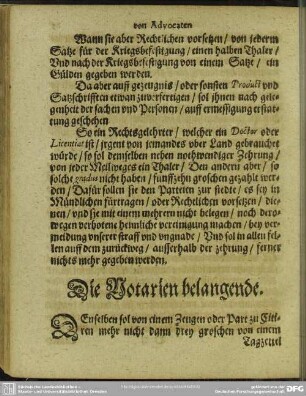 von Advocaten
Wann sie aber Rechtlichen vorsetzen / von jederm
Satze für der Kriegsbefestigung / einen halben Thaler /
Vnd nach der Kriegsbefestigung von einem Satze / ein
Gülden gegeben werden.
Da aber auff gezeugnis / oder sonsten Product vnd
Satzschrifften etwan zuverfertigen / sol ihnen nach gele-
genheit der sachen vnd Personen / auff ermessigung erstat-
tung geschehen
So ein Rechtsgelehrter / welcher ein Doctor oder
Licentiat ist / irgent von jemandes vber Land gebraucht
würde / so sol demselben neben nothwendiger Zehrung /
von jeder Meilweges ein Thaler / Den andern aber / so
solche gradus nicht haben / funffzehn groschen gezahlt wer-
den / Dafür sollen sie den Parteien zur stedte / es sey in
Mündlichen fürtragen / oder Rechtlichen vorsetzen / die-
nen / vnd sie mit einem mehrern nicht belegen / noch dero-
wegen verbotene heimliche vereinigung machen / bey ver-
meidung vnserer straff vnd vngnade / Vnd sol in allen fel-
len auff dem zurückweg / ausserhalb der zehrung / ferner
nichts mehr gegeben werden.
Die Notarien belangende.
DEnselben sol von einem Zeugen oder Part zu Citi-
ren mehr nicht dann drey groschen von einem
Tagzettel